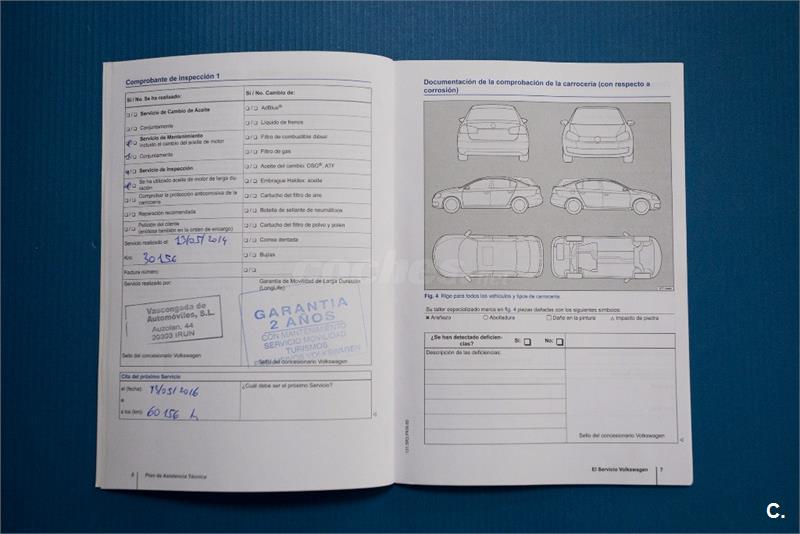 Comprobante de inspección 1
Sí / No. Se ha realizado:
Sí / No. Cambio de:
Servicio de Cambio de Aceite
AdBlue®
Conjuntamente
Líquido de frenos
Servicio de Mantenimiento
incluido el cambio del aceite de motor
Filtro de combustibles diésel
Conjuntamente
Filtro de gas
Servicio de Inspección
Aceite del cambio: DSG®, ATF
Se ha utilizado aceite de motor de larga du-
ración
Embrague Haldex: aceite
Comprobar la protección anticorrosiva de la
carrocería
Cartucho del filtro de aire
Reparación recomendada
Botella de sellante de neumáticos
Petición del cliente
(anótese también en la orden de encargo)
Cartucho del filtro de polvo y polen
Servicio realizado el: 13/05/2014
Correa dentada
Km: 30156
Bujías
Factura número:
Servicio realizado por:
Garantía de Movilidad de Larga Duración
(LongLife)
Vascongada de
Automóviles, S.L.
Auzolan, 44
20303 IRUN
GARANTIA
2 AÑOS
CON MANTENIMIENTO
SERVICIO MOVILIDAD
TURISMOS
VOLKSWAGEN
Sello del concesionario Volkswagen
Sello del concesionario Volkswagen
Cita del próximo Servicio
el (fecha): 13/05/2016
¿Cuál debe ser el próximo Servicio?
o
a los (km): 60156
6 Plan de Asistencia Técnica
Documentación de la comprobación de la carrocería (con respecto a
corrosión)
Fig. 4 Rige para todos los vehículos y tipos de carrocería.
Su taller especializado marca en fig. 4 piezas dañadas con los siguientes símbolos:
Arañazo
Abolladura
Daño en la pintura
Impacto de piedra
¿Se han detectado deficien-
cias?
Sí:
No:
Descripción de las deficiencias:
Sello del concesionario Volkswagen
El Servicio Volkswagen 7
coches.net
C.